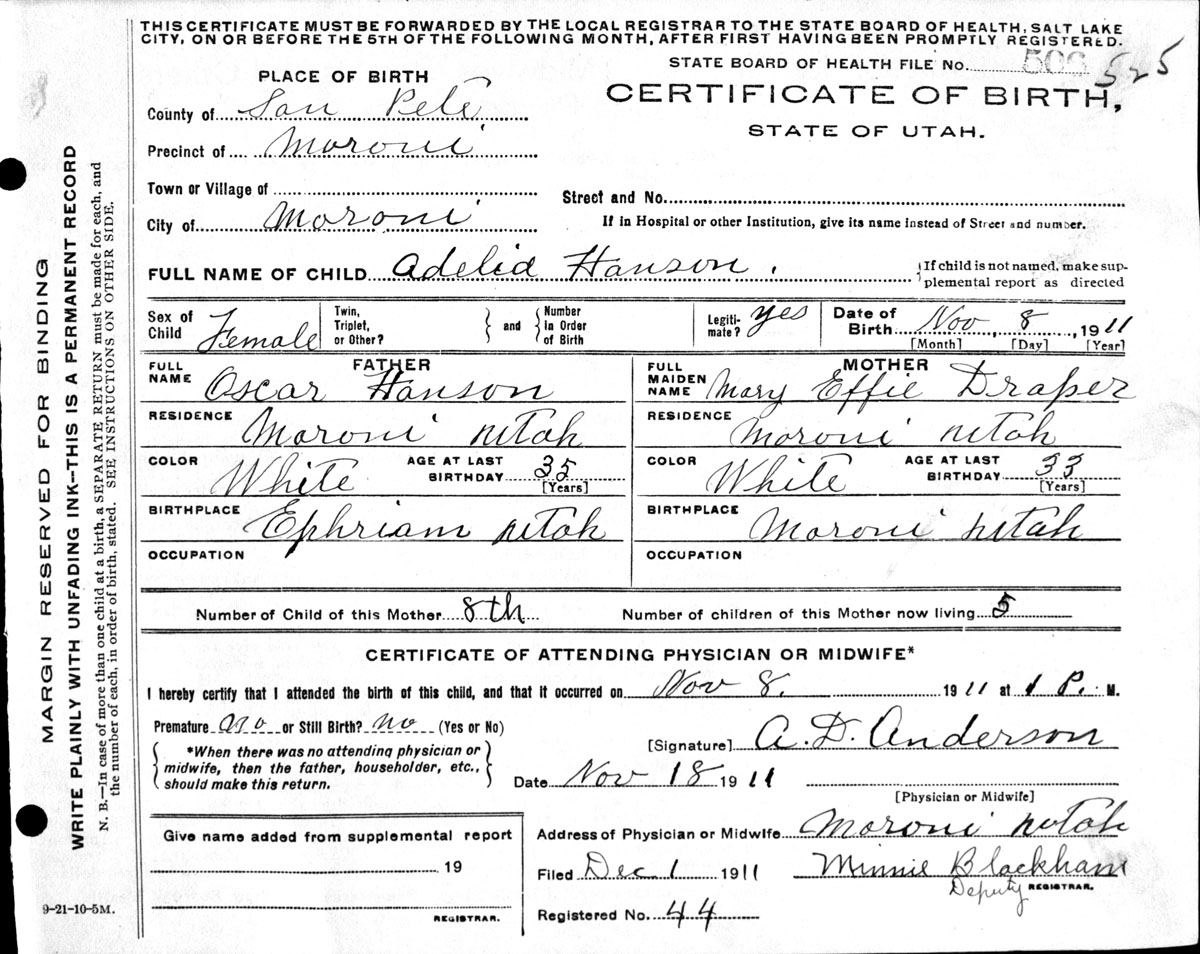 THIS CERTIFICATE MUST BE FORWARDED BY THE LOCAL REGISTRAR TO THE STATE BOARD OF HEALTH, SALT LAKE
CITY, ON OR BEFORE THE 5TH OF THE FOLLOWING MONTH, AFTER FIRST HAVING BEEN PROMPTLY REGISTERED.
STATE BOARD OF HEALTH FILE No. 506 525
PLACE OF BIRTH
CERTIFICATE OF BIRTH,
STATE OF UTAH.
County of San Pete
Precinct of Moroni
Town or Village of
Street and No.
City of Moroni
If in Hospital or other Institution, give its name instead of Street and number.
FULL NAME OF CHILD Adelia Hanson.
{If child is not named, make sup-
plemental report as directed
Sex of Child Female
Twin, Triplet, or Other?
and
Number in Order of Birth
Legiti-mate? yes
Date of Birth Nov, 8, 1911
[Month] [Day] [Year]
FATHER
FULL NAME Oscar Hanson
RESIDENCE Moroni Utah
COLOR White AGE AT LAST BIRTHDAY 35
[Years]
BIRTHPLACE Ephriam Utah
OCCUPATION
MOTHER
FULL MAIDEN NAME Mary Effie Draper
RESIDENCE Moroni Utah
COLOR White AGE AT LAST BIRTHDAY 33
[Years]
BIRTHPLACE Moroni Utah
OCCUPATION
Number of Child of this Mother 8th Number of children of this Mother now living 5
CERTIFICATE OF ATTENDING PHYSICIAN OR MIDWIFE*
I hereby certify that I attended the birth of this child, and that it occurred on Nov 8. 1911 at 1 P. M.
Premature no or Still Birth? no (Yes or No)
*When there was no attending physician or
midwife, then the father, householder, etc.,
should make this return.
[Signature] A. D. Anderson
Date Nov 18 1911
[Physician or Midwife]
Give name added from supplemental report
19
REGISTRAR.
Address of Physician or Midwife Moroni Utah
Filed Dec 1 1911 Minnie Blackham
Deputy REGISTRAR.
Registered No. 44
MARGIN RESERVED FOR BINDING
WRITE PLAINLY WITH UNFADING INK—THIS IS A PERMANENT RECORD
N. B.—In case of more than one child at a birth, a SEPARATE RETURN must be made for each, and
the number of each, in order of birth, stated. SEE INSTRUCTIONS ON OTHER SIDE.
9-21-10-5M.